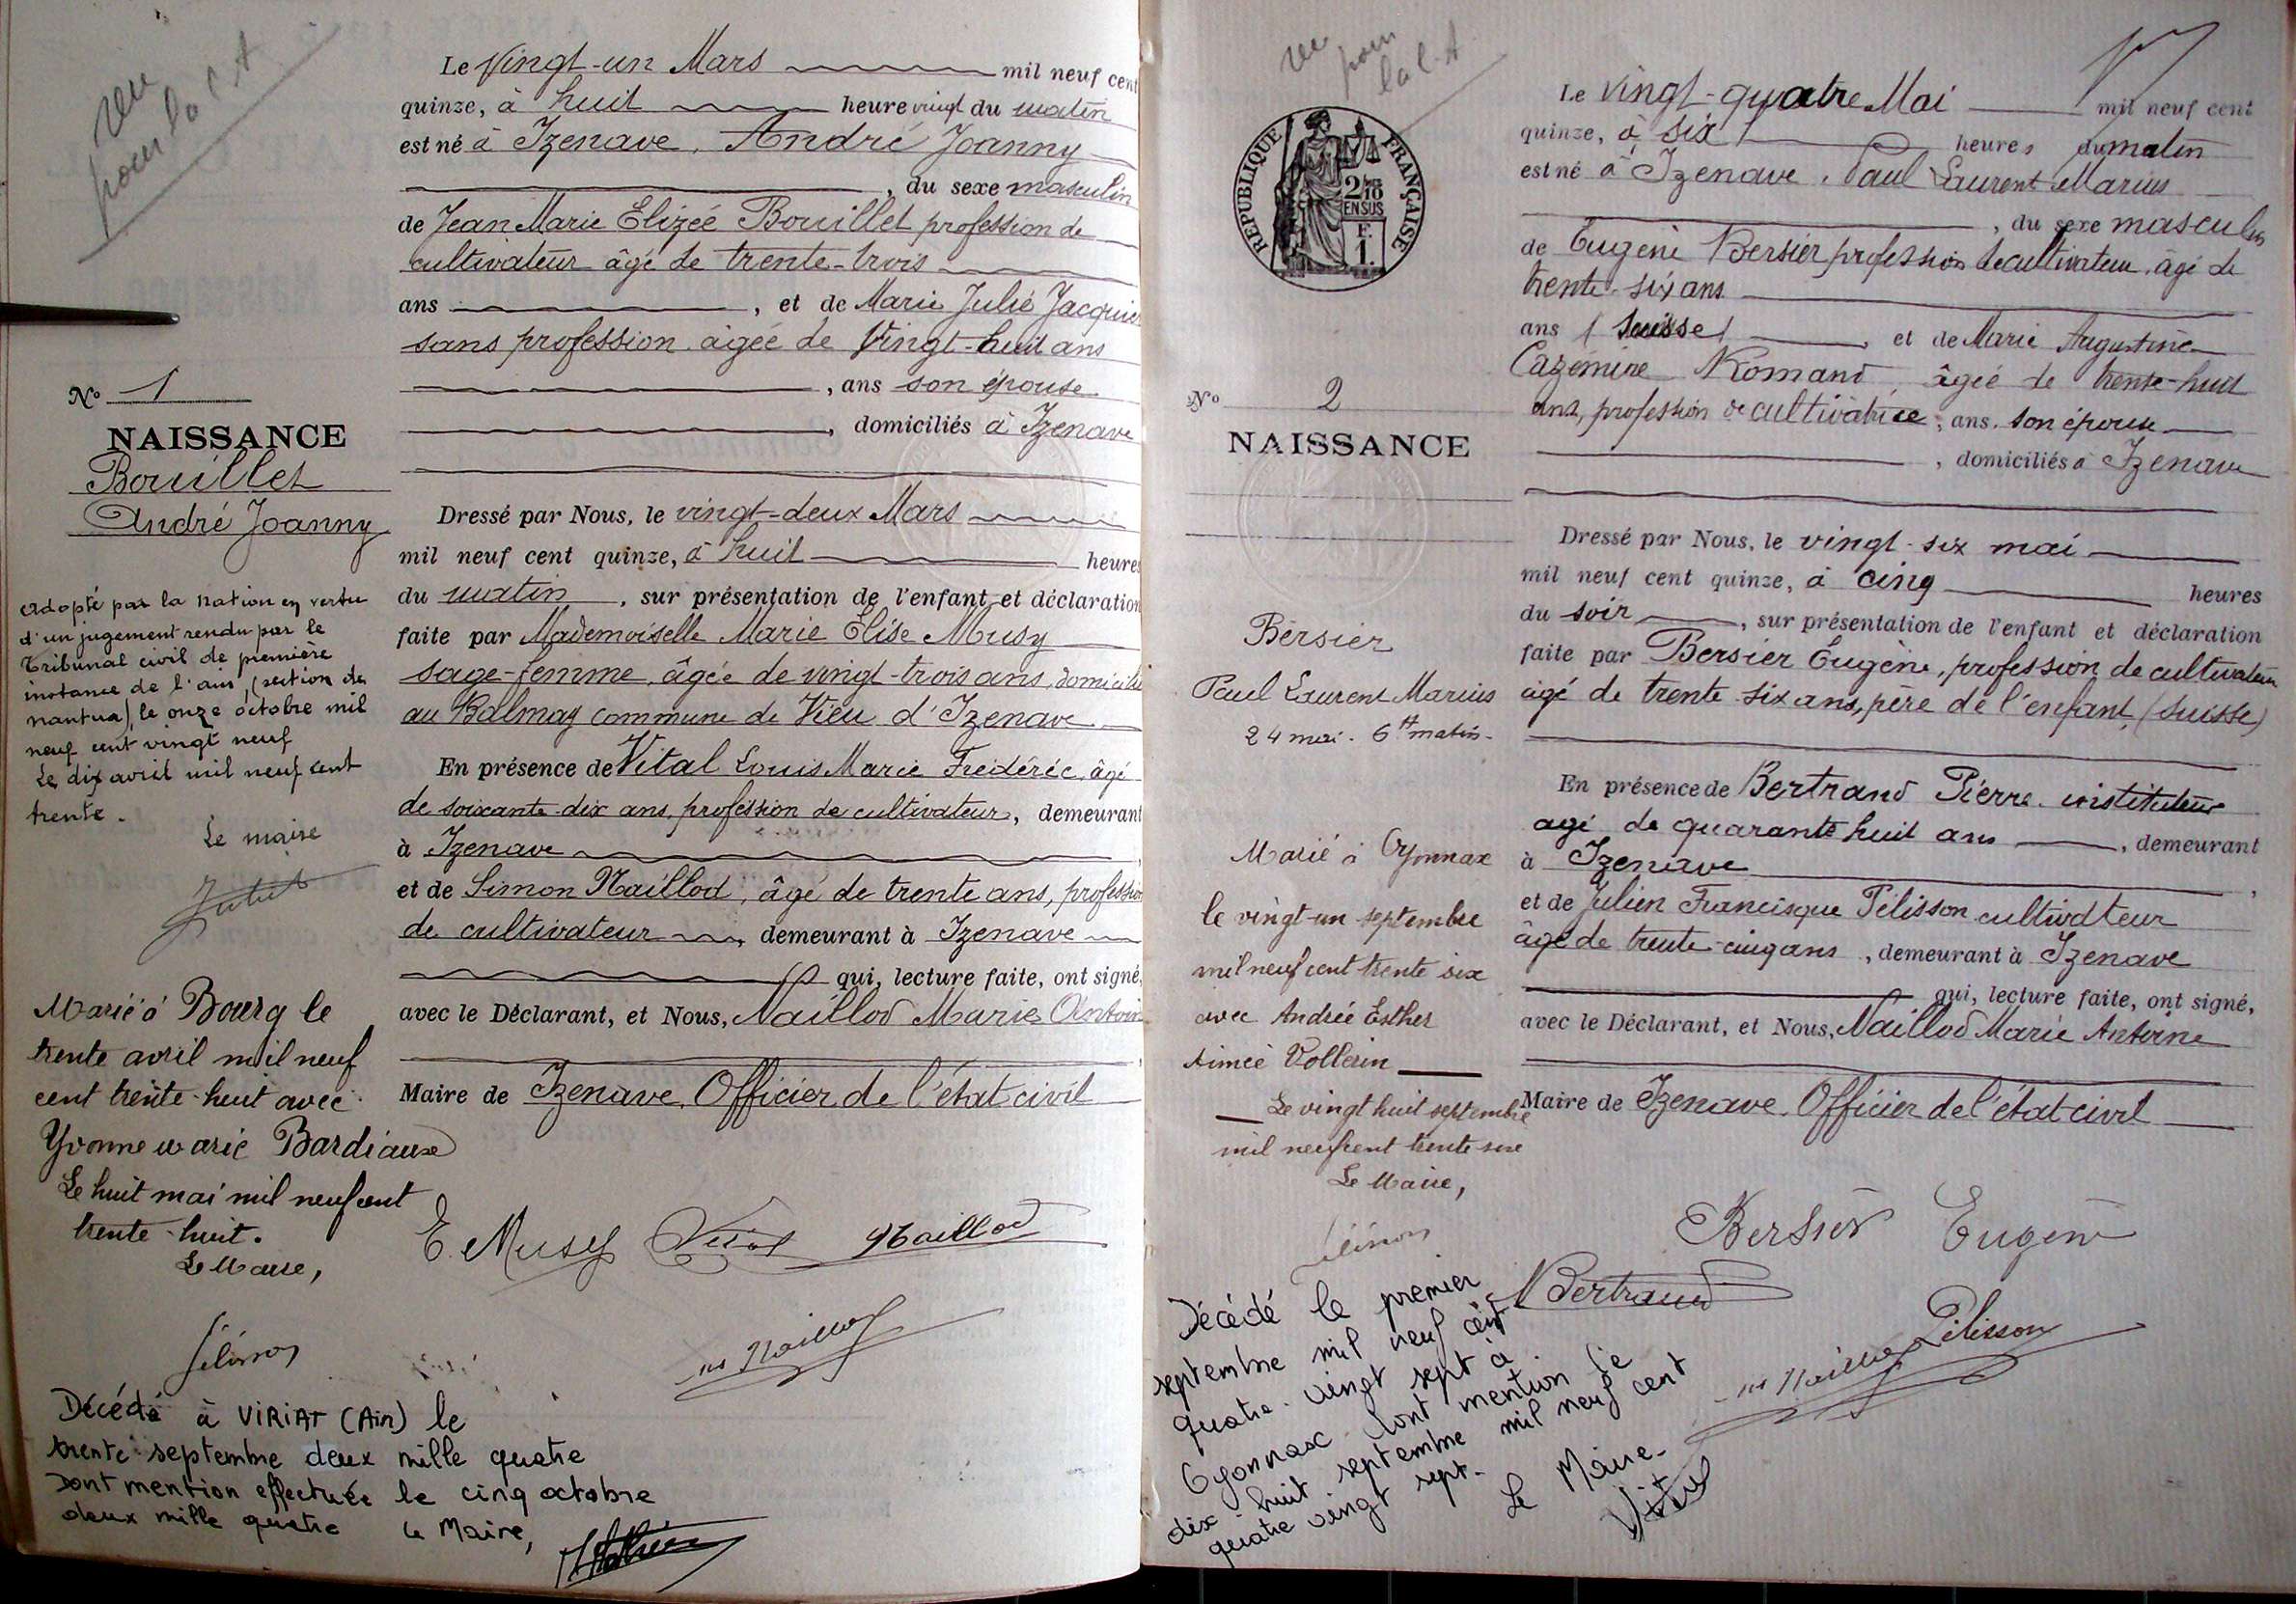 vu
pour la C A
Le Vingt-un Mars mil neuf cent
quinze, à huit heure vingt du matin
est né à Izenave, André Joanny
, du sexe masculin
de Jean Marie Elizée Bouillet profession de
cultivateur âgé de trente-trois
ans , et de Marie Julie Jacquier
sans profession âgée de Vingt-huit ans
, ans son épouse
, domiciliés à Izenave
Dressé par Nous, le vingt-deux Mars
mil neuf cent quinze, à huit heures
du matin , sur présentation de l'enfant et déclaration
faite par Mademoiselle Marie Elise Musy
sage-femme, âgée de vingt-trois ans, domiciliée
au Balmay commune de Vieu d'Izenave
En présence de Vital Louis Marie Frédéric, âgé
de soixante-dix ans, profession de cultivateur, demeurant
à Izenave
et de Simon Naillod, âgé de trente ans, profession
de cultivateur , demeurant à Izenave
qui, lecture faite, ont signé,
avec le Déclarant, et Nous, Naillod Marie Antoine
Maire de Izenave, Officier de l'état-civil
E. Musy Vital Naillod
Naillod
No 1
NAISSANCE
Bouillet
André Joanny
Adopté par la nation en vertu
d'un jugement rendu par le
Tribunal civil de première
instance de l'ain, (section de
nantua), le onze octobre mil
neuf cent vingt neuf
Le dix avril mil neuf cent
trente.
Le maire
Marié à Bourg le
trente avril mil neuf
cent trente-huit avec
Yvonne Marie Bardiaux
Le huit mai mil neuf cent
trente-huit.
Le Maire,
Pélisson
Décédé à VIRIAT (Ain) le
trente septembre deux mille quatre
Dont mention effectuée le cinq octobre
deux mille quatre Le Maire,
vu
pour
la C. A
REPUBLIQUE FRANÇAISE
2/10
EN SUS
F.
1.
Le vingt-quatre Mai mil neuf cent
quinze, à six heures du matin
est né à Izenave, Paul Laurent Marius
, du sexe masculin
de Eugène Bersier profession de cultivateur, âgé de
trente-six ans
ans (Suisse) , et de Marie Augustine
Cazémire Romand, âgée de trente-huit
ans, profession de cultivatrice, ans, son épouse
, domiciliés à Izenave
Dressé par Nous, le vingt-six mai
mil neuf cent quinze, à cinq heures
du soir , sur présentation de l'enfant et déclaration
faite par Bersier Eugène, profession de cultivateur
âgé de trente-six ans, père de l'enfant, (Suisse)
En présence de Bertrand Pierre instituteur
âgé de quarante huit ans , demeurant
à Izenave ,
et de Julien Francisque Pélisson cultivateur
âgé de trente-cinq ans , demeurant à Izenave
qui, lecture faite, ont signé,
avec le Déclarant, et Nous, Naillod Marie Antoine
Maire de Izenave, Officier de l'état-civil
Bersier Eugène
Bertrand
Pélisson
Naillod
No 2
NAISSANCE
Bersier
Paul Laurent Marius
24 mai. 6 H matin.
Marié à Oyonnax
le vingt-un septembre
mil neuf cent trente six
avec Andrée Esther
Aimée Vollerin
Le vingt huit septembre
mil neuf cent trente six
Le Maire,
Pélisson
Décédé le premier
septembre mil neuf cent
quatre-vingt sept à
Oyonnax dont mention le
dix huit septembre mil neuf cent
quatre vingt sept.
Le Maire.